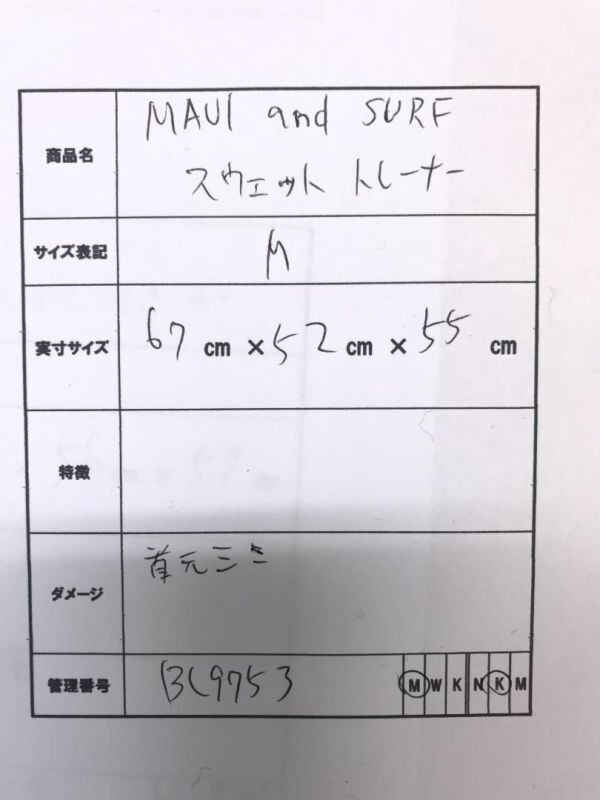 商品名 MAUI and SURF
スウェット トレーナー
サイズ表記 M
実寸サイズ 67 cm × 52 cm × 55 cm
特徴
ダメージ 首元
管理番号 BC9753 M W K N K M